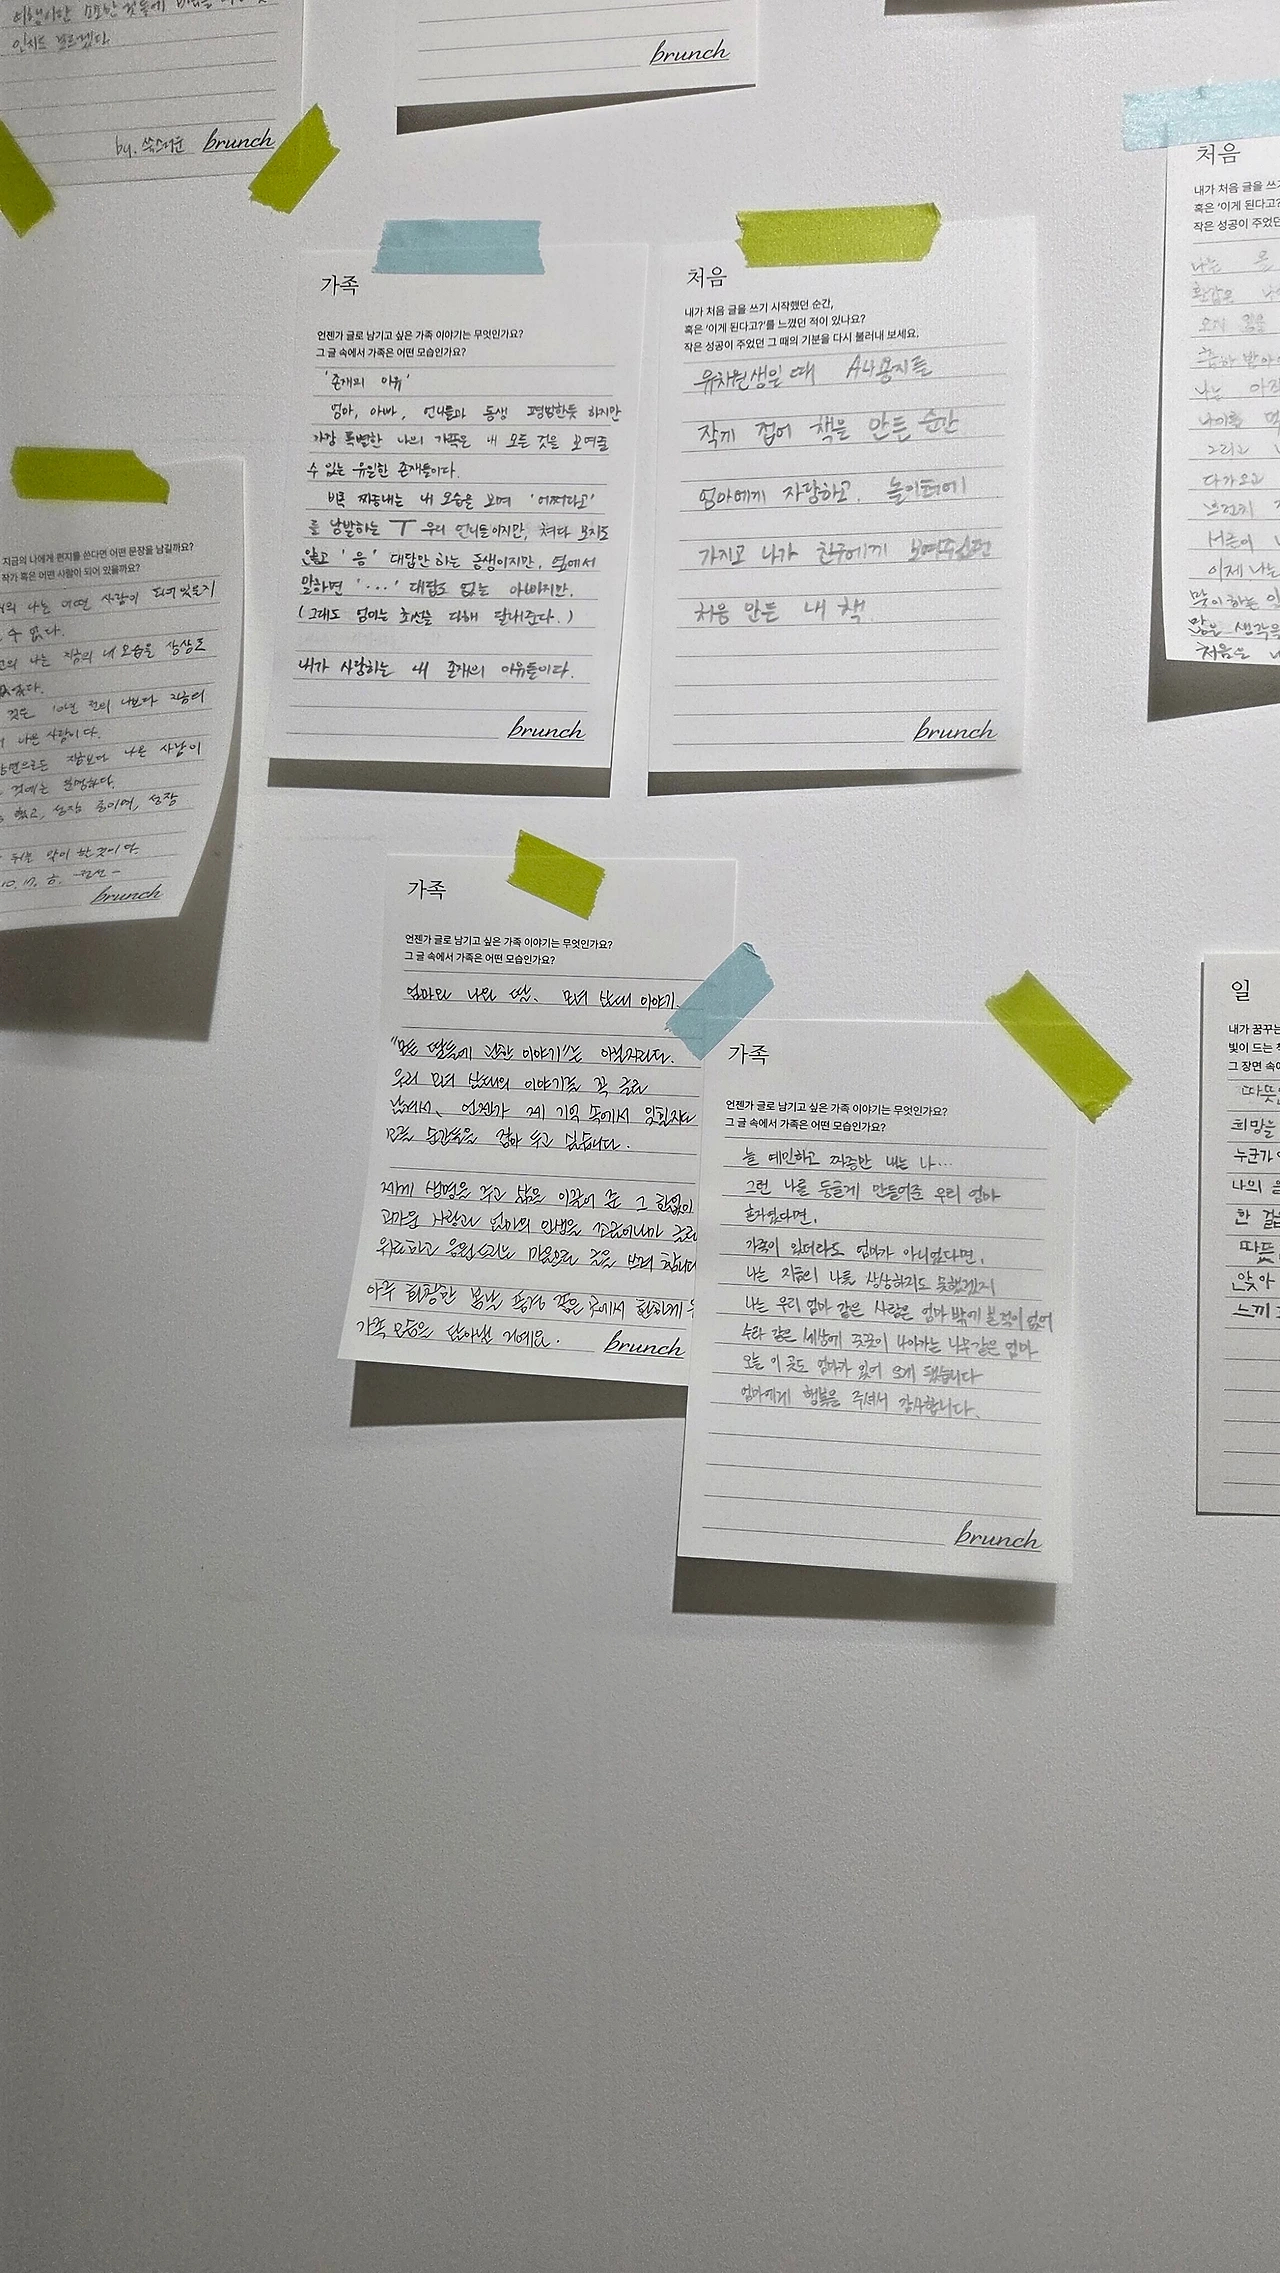 인지도 모르겠다.
by. 쑥스러운 brunch
brunch
가족
언젠가 글로 남기고 싶은 가족 이야기는 무엇인가요?
그 글 속에서 가족은 어떤 모습인가요?
'존재의 이유'
엄마, 아빠, 언니들과 동생 평범한듯 하지만
가장 특별한 나의 가족은 내 모든 것을 보여줄
수 있는 유일한 존재들이다.
비록 짜증내는 내 모습을 보며 '어쩌라고'
를 남발하는 T 우리 언니들이지만, 쳐다 보지도
않고 '응' 대답만 하는 동생이지만, 옆에서
말하면 '...' 대답도 없는 아빠지만.
(그래도 엄마는 최선을 다해 달래준다.)
내가 사랑하는 내 존재의 이유들이다.
brunch
처음
내가 처음 글을 쓰기 시작했던 순간,
혹은 '이게 된다고?'를 느꼈던 적이 있나요?
작은 성공이 주었던 그 때의 기분을 다시 불러내 보세요.
유치원생일 때 A4용지를
작게 접어 책을 만든 순간
엄마에게 자랑하고, 놀이터에
가지고 나가 친구에게 보여주던
처음 만든 내 책
brunch
처음
내가 처음 글을 쓰기
혹은 '이게 된다고?
작은 성공이 주었던
나는
오지 않을
나는
그리고
다가오고
이제 나는
많이 하는
많은 생각을
처음은
지금의 나에게 편지를 쓴다면 어떤 문장을 남길까요?
작가 혹은 어떤 사람이 되어 있을까요?
나는 어떤 사람이 되어있을지
수 없다.
나는 지금의 내 모습을 상상도
것은 10년 전의 나보다 지금의
나은 사람이다.
지금보다 나은 사람이
것에는 분명하다.
했고, 성장 중이며, 성장
할 것이다.
brunch
가족
언젠가 글로 남기고 싶은 가족 이야기는 무엇인가요?
그 글 속에서 가족은 어떤 모습인가요?
엄마와 나와 딸, 모녀 삼대 이야기.
"모든 딸들에 관한 이야기"는 아닐지라도.
우리 모녀 삼대의 이야기를 꼭 글로
남겨서, 언젠가 제 기억 속에서 잊힐지도
모를 순간들을 잡아 두고 싶습니다.
제게 생명을 주고 삶을 이끌어 준 그 한없이
고마운 사랑과 엄마의 인생을 조금이나마 글로
위로하고 응원하는 마음으로 글을 쓰려 합니다
아주 화창한 봄날 풍경 좋은 곳에서 환하게
가족 모습을 담아낼 거예요.
brunch
가족
언젠가 글로 남기고 싶은 가족 이야기는 무엇인가요?
그 글 속에서 가족은 어떤 모습인가요?
늘 예민하고 짜증만 내는 나...
그런 나를 둥글게 만들어준 우리 엄마
혼자였다면,
가족이 있더라도 엄마가 아니었다면,
나는 지금의 나를 상상하지도 못했겠지
나는 우리 엄마 같은 사람은 엄마 밖에 본 적이 없어
수라 같은 세상에 꿋꿋이 나아가는 나무같은 엄마
오늘 이 곳도 엄마가 있어 오게 됐습니다
엄마에게 행복을 주셔서 감사합니다.
brunch
일
내가 꿈꾸는
빛이 드는
그 장면 속에
희망을
누군가
나의
한
앉아
느끼